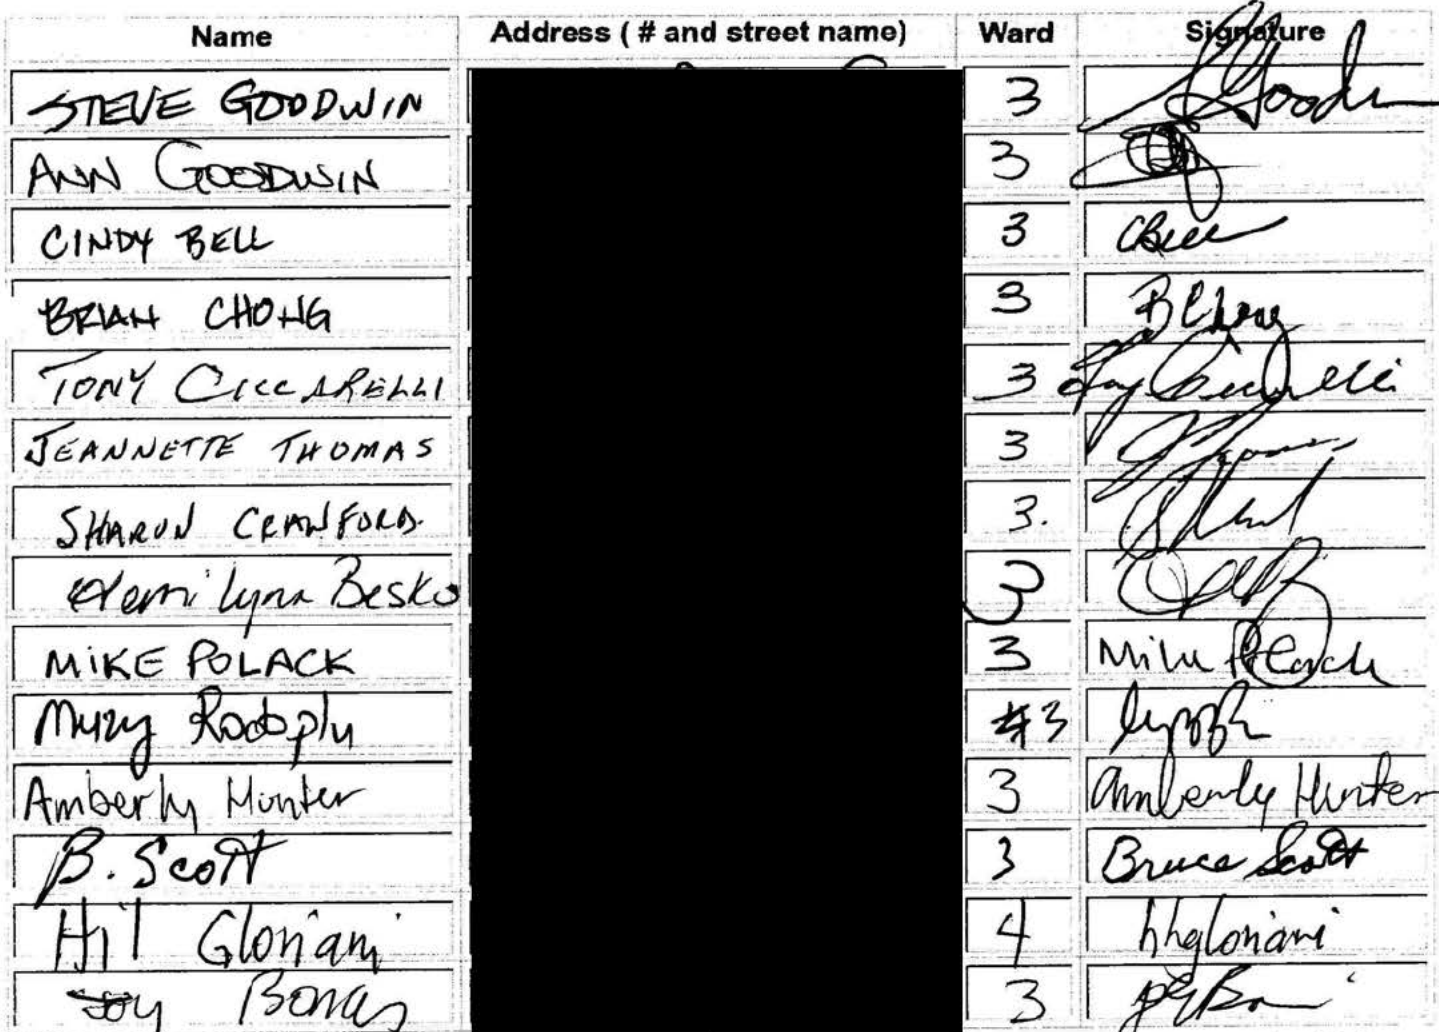 Name Address ( # and street name) Ward Signature
STEVE GOODWIN 3 Goodw
ANN GOODWIN 3
CINDY BELL 3 CBell
BRIAN CHONG 3 B Chong
TONY CICCARELLI 3 Tony Ciccarelli
JEANNETTE THOMAS 3
SHARON CRAWFORD. 3.
Lynn Besko 3
MIKE POLACK 3 Mike Polack
Rodoplu #3
Amberly Hunter 3 Amberly Hunter
B. Scott 3 Bruce Scott
Hil Gloriani 4 hhgloriani
Joy 3